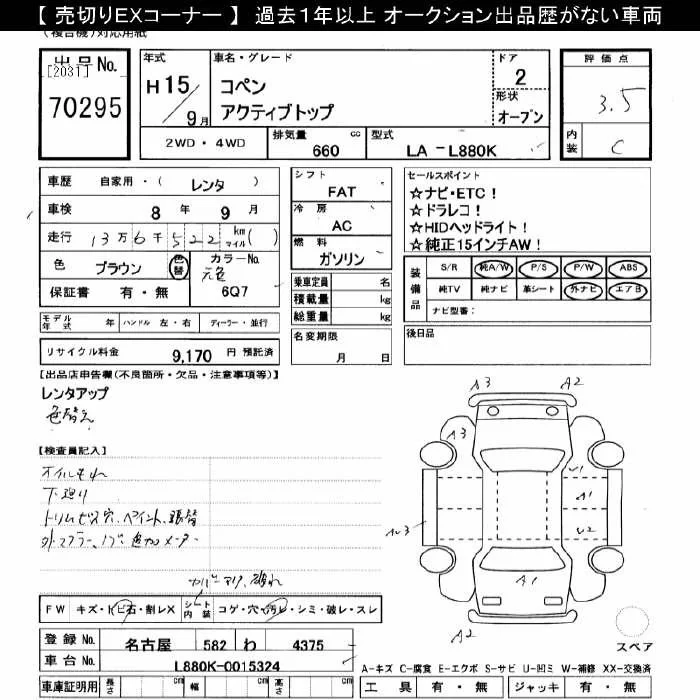 【 売切りEXコーナー 】 過去１年以上 オークション出品歴がない車両
(複合機)対応用紙
出品No.
[2031]
70295
年式
H 15/9月
車名・グレード
コペン
アクティブトップ
ドア
2
形状
オープン
評価点
3.5
内装
C
2WD・4WD
排気量
660 cc
型式
LA - L880K
車歴 自家用・( レンタ )
車検 8 年 9 月
走行 13万6千522 km マイル ( )
色 ブラウン 色替 カラーNo.
元色
保証書 有・無 6Q7
シフト
FAT
冷房
AC
燃料
ガソリン
乗車定員 名
積載量 kg
総重量 kg
セールスポイント
☆ナビ・ETC！
☆ドラレコ！
☆HIDヘッドライト！
☆純正15インチAW！
装備品
S/R 純A/W P/S P/W ABS
純TV 純ナビ 革シート 外ナビ エアB
ナビ型番：
モデル年式 年 ハンドル 左・右 ディーラー・並行
名変期限
月 日
後日品
リサイクル料金 9,170 円 預託済
【出品店申告欄(不良箇所・欠品・注意事項等)】
レンタアップ
色替え
【検査員記入】
オイルモレ
下廻り
トリムビス穴、ペイント、張替
外マフラー、追加メーター
A3 A2
A3
A1
A1
A2
FW キズ・トビ石・割レX シート内装 コゲ・穴・汚レ・シミ・破レ・スレ
登録No. 名古屋 582 わ 4375
車台No. L880K-0015324
車庫証明用 長さ cm 幅 cm 高さ cm
スペア
A-キズ C-腐食 E-エクボ S-サビ U-凹ミ W-補修 XX-交換済
工具 有・無 ジャッキ 有・無